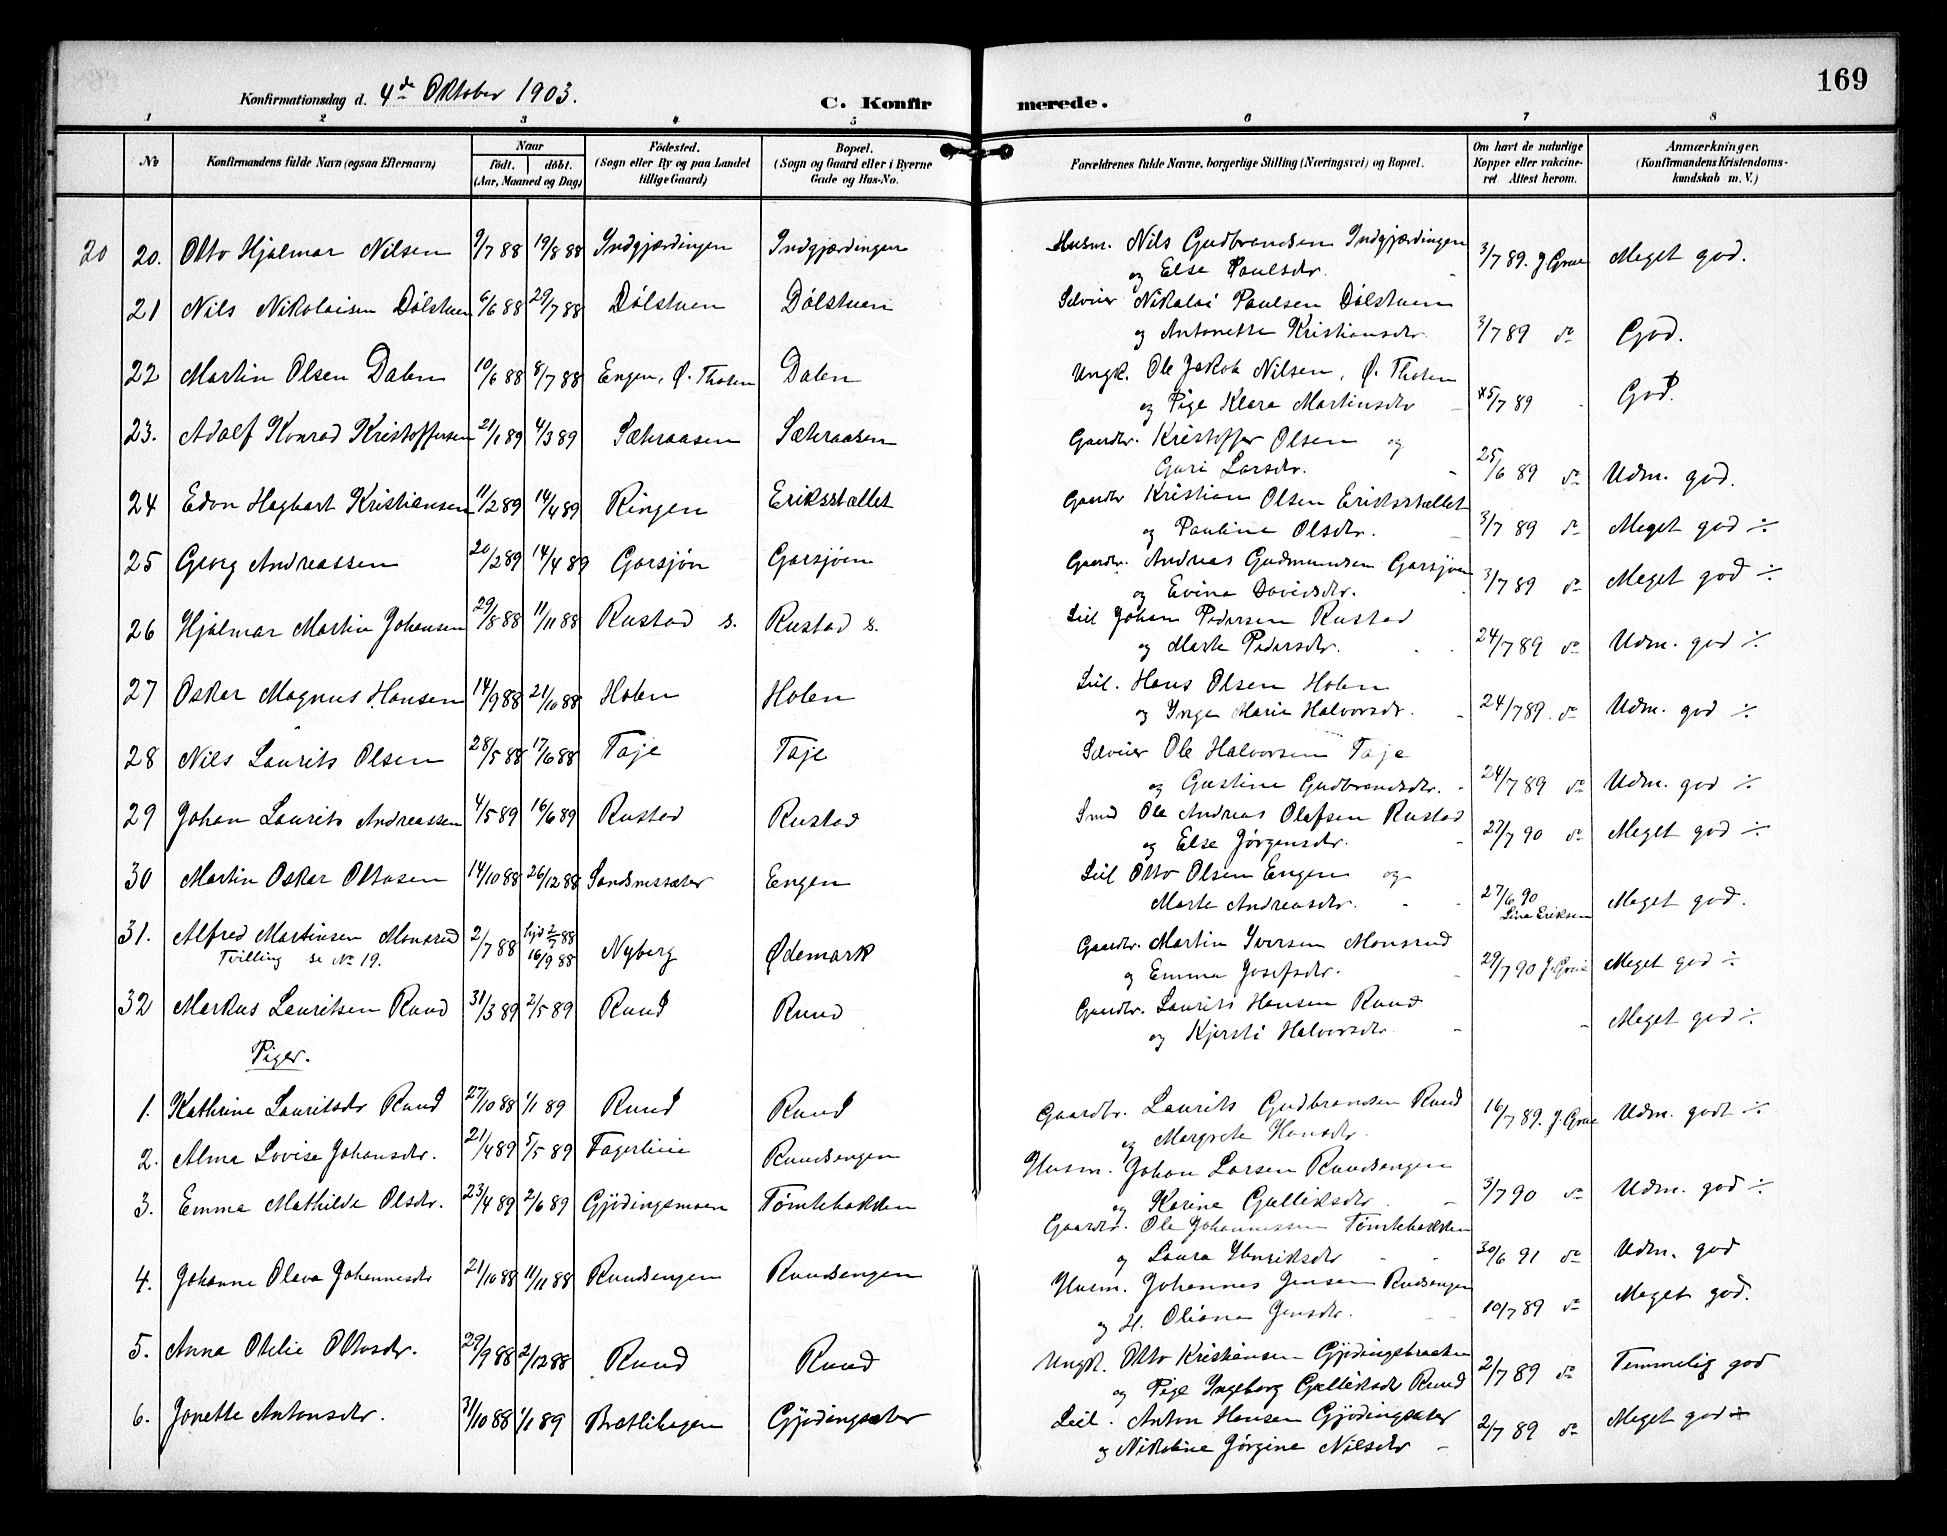 169
Konfirmationsdag d. 4de Oktober 1903.
C. Konfirmerede.
1 2 3 4 5 6 7 8
No
Konfirmandens fulde Navn (ogsaa Efternavn)
Naar
födt. döbt.
(Aar, Maaned og Dag)
Födested.
(Sogn eller By og paa Landet
tillige Gaard)
Bopæl.
(Sogn og Gaard eller i Byerne
Gade og Hus-No.
Forældrenes fulde Navne, borgerlige Stilling (Næringsvei) og Bopæl.
Om havt de naturlige
Kopper eller vakcine-
ret Attest herom.
Anmærkninger,
(Konfirmandens Kristendoms-
kundskab m. V.)
20 20. Otto Hjalmar Nilsen 9/7 88 19/8 88 Indgjærdingen Indgjærdingen Husm. Nils Gudbrandsen Indgjærdingen 3/7 89. J. Grue Meget god.
og Else Paulsdr.
21 Nils Nikolaisen Dölstuen 6/6 88 29/7 88 Dölstuen Dölstuen Selveier Nikolai Paulsen Dölstuen
og Antonette Kristiansdr. 3/7 89 do God.
22 Martin Olsen Dalen 10/6 88 8/7 88 Engen, Ø. Thoten Dalen Ungk. Ole Jakob Nilsen, Ø. Thoten
og Pige Klara Martinsdr 15/7 89 God.
23. Adolf Konrad Kristoffersen 21/1 89 4/3 89 Sætraasen Sætraasen Gaardbr. Kristoffer Olsen og
Guri Larsdr. 25/6 89 do Udm. god.
24 Edvn Hagbart Kristiansen 11/2 89 14/4 89 Ringen Eriksstallet Gaardbr Kristian Olsen Eriksstallet
og Pauline Olsdr. 3/7 89 do Meget god ÷
25 Georg Andreassen 20/2 89 14/4 89 Garsjøn Garsjøen Gaardbr. Andreas Gudmundsen Garsjøen
og Evina Davidsdr. 3/7 89 do Meget god ÷
26 Hjalmar Martin Johansen 29/8 88 11/11 88 Rustad s. Rustad s. Leil Johan Pedersen Rustad
og Marte Pedersdr. 24/7 89 do Udm. god ÷
27 Oskar Magnus Hansen 14/9 88 21/10 88 Holen Holen Leil. Hans Olsen Holen
og Inge Marie Halvorsdr. 24/7 89. do Udm. god ÷
28 Nils Laurits Olsen 28/5 88 17/6 88 Taje Taje Selveier Ole Halvorsen Taje
og Gustine Gudbrandsdr. 24/7 89 do Udm. god ÷
29 Johan Laurits Andreassen 4/5 89 16/6 89 Rustad Rustad Smed Ole Andreas Olafsen Rustad
og Else Jørgensdr. 27/7 90 do Meget god ÷
30 Martin Oskar Ottosen 14/10 88 26/12 88 Sandnessæter Engen Leil Otto Olsen Engen og
Marte Andreasdr. 27/6 90 Meget god.
Lina Eriksen
31. Alfred Martinsen Monsrud 2/7 88 hjd 2/7 88 Nyberg Ødemark Gaardbr. Martin Iversen Monsrud
Tvilling se No 19. 16/9 88 og Emma Josefsdr. 29/7 90 J. Grue Meget god ÷
32 Markus Lauritsen Ruud 31/3 89 2/5 89 Ruud Ruud Gaardbr. Laurits Hansen Ruud
og Kjersti Halvorsdr. Meget god ÷
Piger.
1. Kathrine Lauritsdr Ruud 27/10 88 1/1 89 Ruud Ruud Gaardbr. Laurits Gudbrandsen Ruud 16/7 89. J. Grue Udm. godt ÷
og Margrete Hansdr.
2. Alma Lovise Johansdr. 21/4 89 5/5 89 Fagerliie Ruudsengen Husm. Johan Larsen Ruudsengen
og Karine Gulliksdr. 3/7 90 do Udm. god ÷
3. Emma Mathilde Olsdr. 23/4 89 2/6 89 Gjödingsmoen Tømtebakken Gaardbr. Ole Johannessen Tømtebakken
og Laura Henriksdr 30/6 91 do Udm. god
4. Johanne Olava Johannesdr 21/10 88 11/11 88 Ruudsengen Ruudsengen Husm. Johannes Jensen Rudsengen
og H. Oliana Jensdr. 10/7 89 do Meget god.
5. Anna Otilie Ottosdr. 29/9 88 2/12 88 Ruud Ruud Ungk. Otto Kristiansen Gjödingsbraaten
og Pige Ingeborg Gulliksdr Ruud 2/7 89 do Temmelig god
6. Jonette Antonsdr. 31/10 88 1/1 89 Brætlihagen Gjödingsæter Leil. Anton Hansen Gjödingsæter
og Nikoline Jørgine Nilsdr 2/7 89 do Meget god ÷